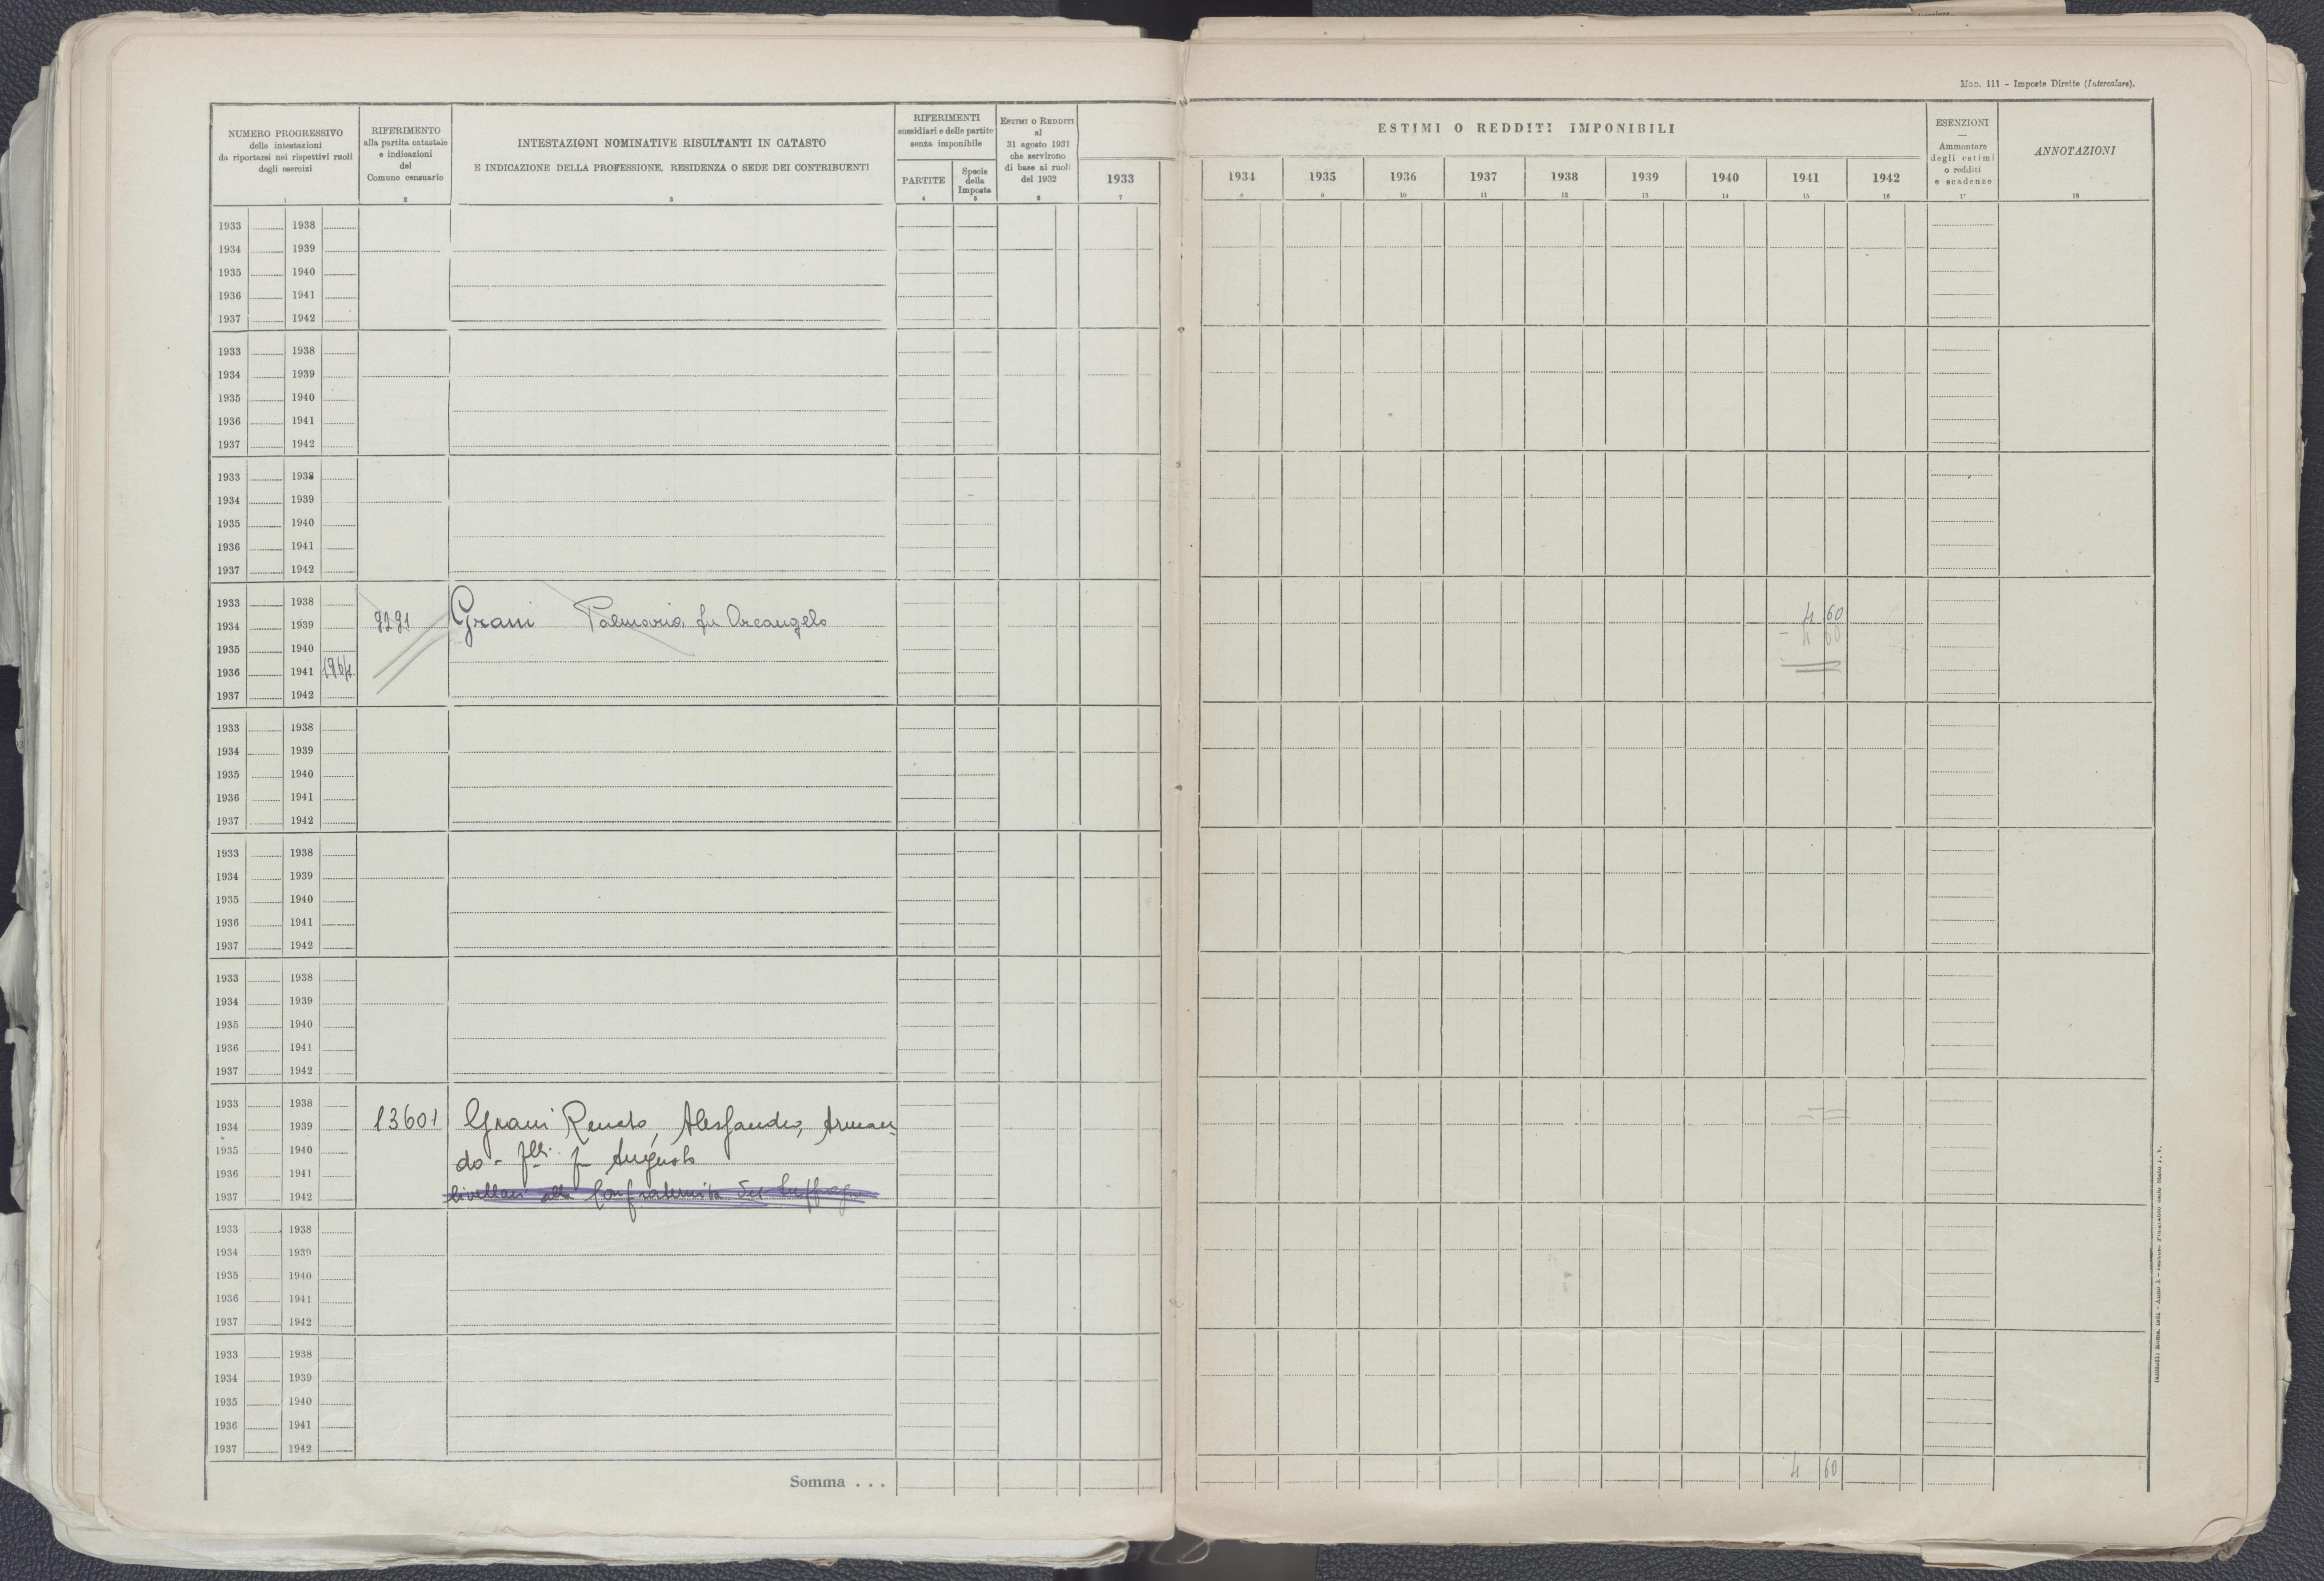 Mod. 111 - Imposte Dirette (Intercalare).
NUMERO PROGRESSIVO
delle intestazioni
da riportarsi nei rispettivi ruoli
degli esercizi
1
RIFERIMENTO
alla partita catastale
e indicazioni
del
Comune censuario
2
INTESTAZIONI NOMINATIVE RISULTANTI IN CATASTO
E INDICAZIONE DELLA PROFESSIONE, RESIDENZA O SEDE DEI CONTRIBUENTI
3
RIFERIMENTI
sussidiari e delle partite
senza imponibile
PARTITE
4
Specie
della
Imposta
5
ESTIMI O REDDITI
al
31 agosto 1931
che servirono
di base ai ruoli
del 1932
6
1933
7
ESTIMI O REDDITI IMPONIBILI
1934 1935 1936 1937 1938 1939 1940 1941 1942
8 9 10 11 12 13 14 15 16
ESENZIONI
—
Ammontare
degli estimi
o redditi
e scadenze
17
ANNOTAZIONI
18
1933 1938
1934 1939
1935 1940
1936 1941
1937 1942
1933 1938
1934 1939
1935 1940
1936 1941
1937 1942
1933 1938
1934 1939
1935 1940
1936 1941
1937 1942
1933 1938 4 60
1934 1939 9291 Grani Palmaria fu Arcangelo
1935 1940 - 4 60
1936 1941 1964
1937 1942
1933 1938
1934 1939
1935 1940
1936 1941
1937 1942
1933 1938
1934 1939
1935 1940
1936 1941
1937 1942
1933 1938
1934 1939
1935 1940
1936 1941
1937 1942
1933 1938
1934 1939 13601 Grani Renato, Alessandro, Arman-
1935 1940 do - flli. fu Augusto
1936 1941
1937 1942 livellari alla Confraternita del Suffragio
1933 1938
1934 1939
1935 1940
1936 1941
1937 1942
1933 1938
1934 1939
1935 1940
1936 1941
1937 1942
Somma . . . 4 60